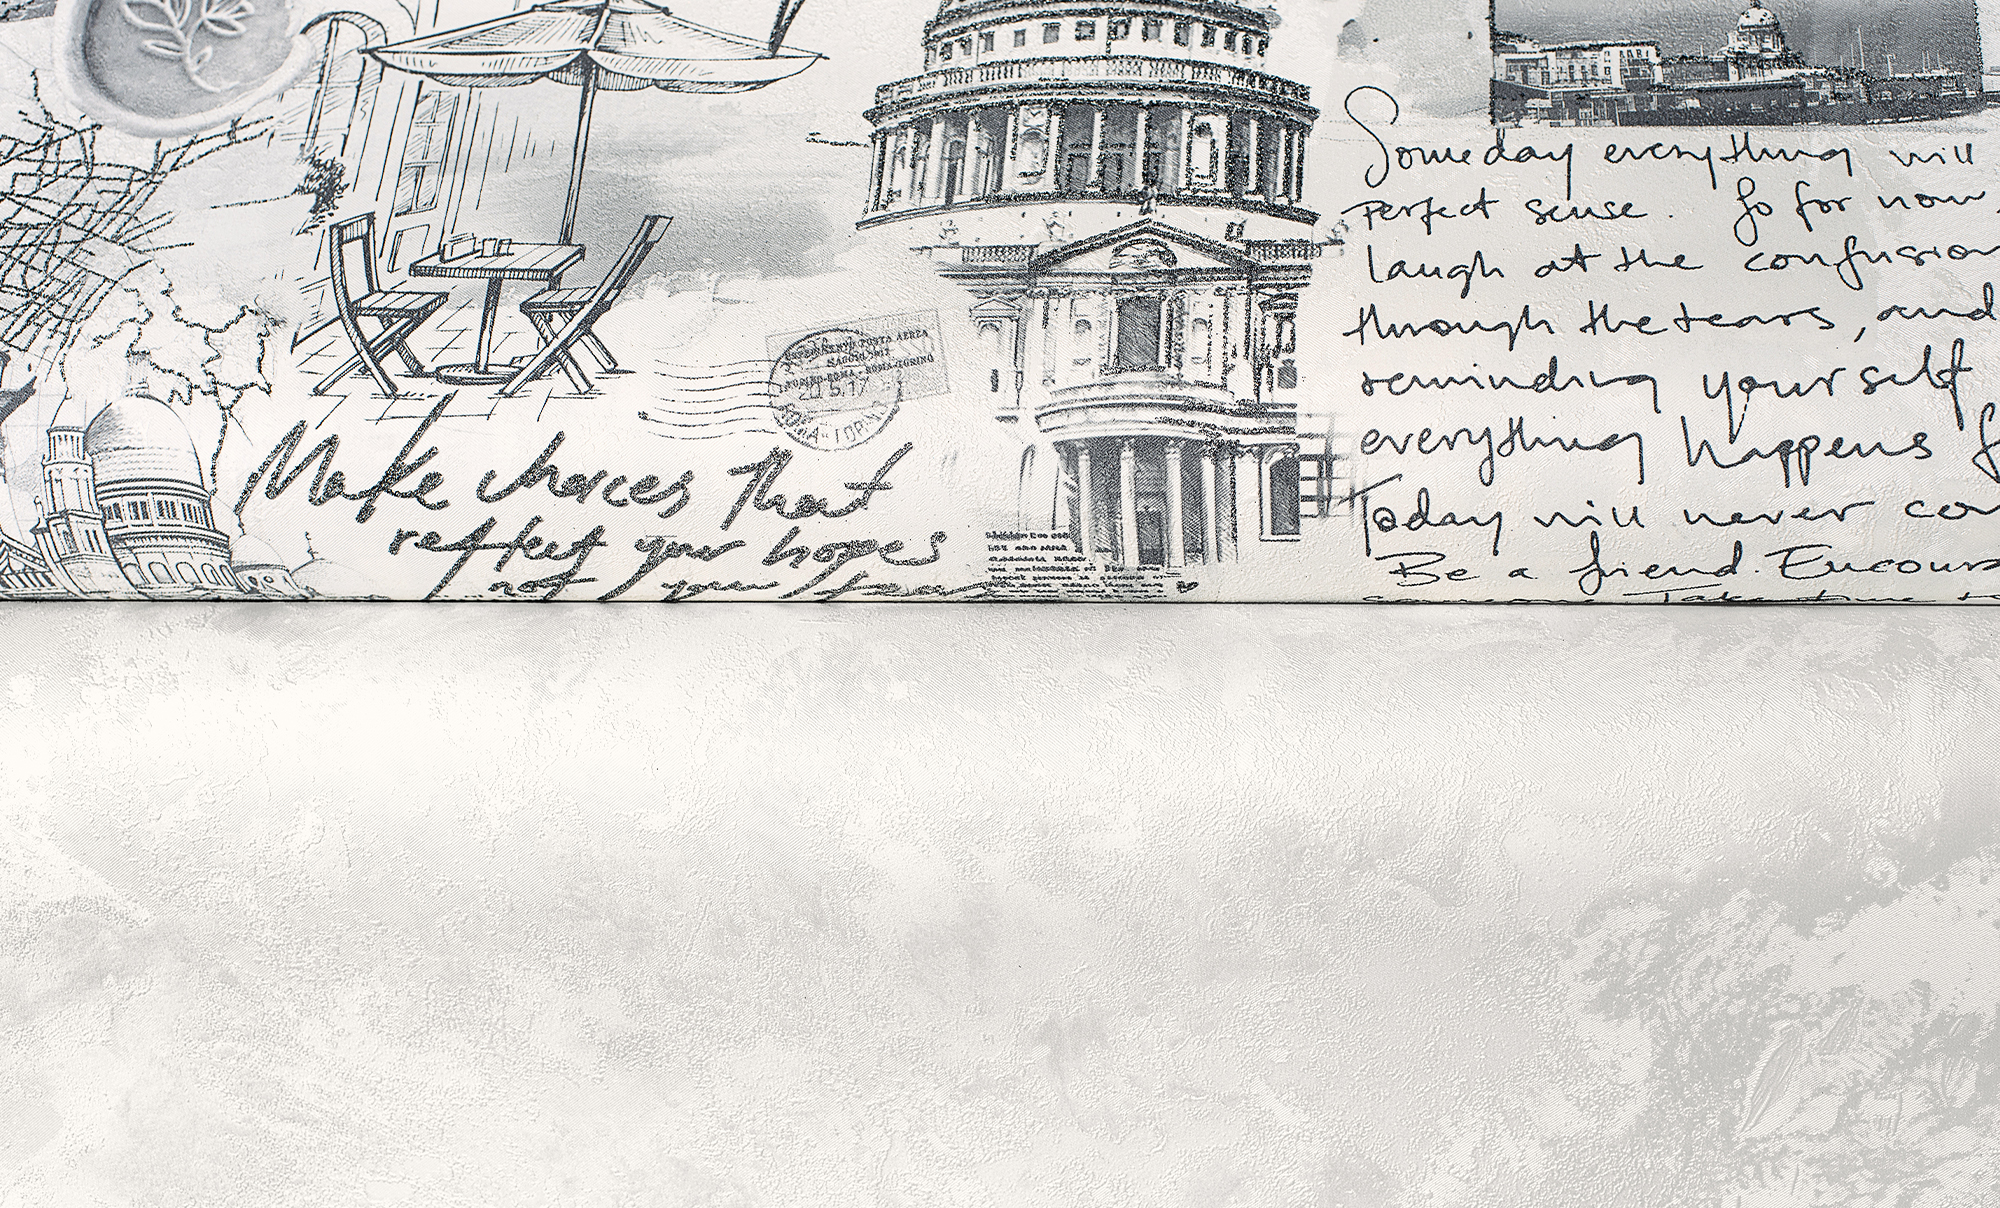 POSTA AEREA
MAGGIO 1917
TORINO-ROMA · ROMA-TORINO
20.5.17
Make choices that
reflect your hopes
not your fears
Someday everything will
perfect sense. So for now,
laugh at the confusion
through the tears, and
reminding yourself
everything happens f
Today will never co
Be a friend. Encour
someone Take time to